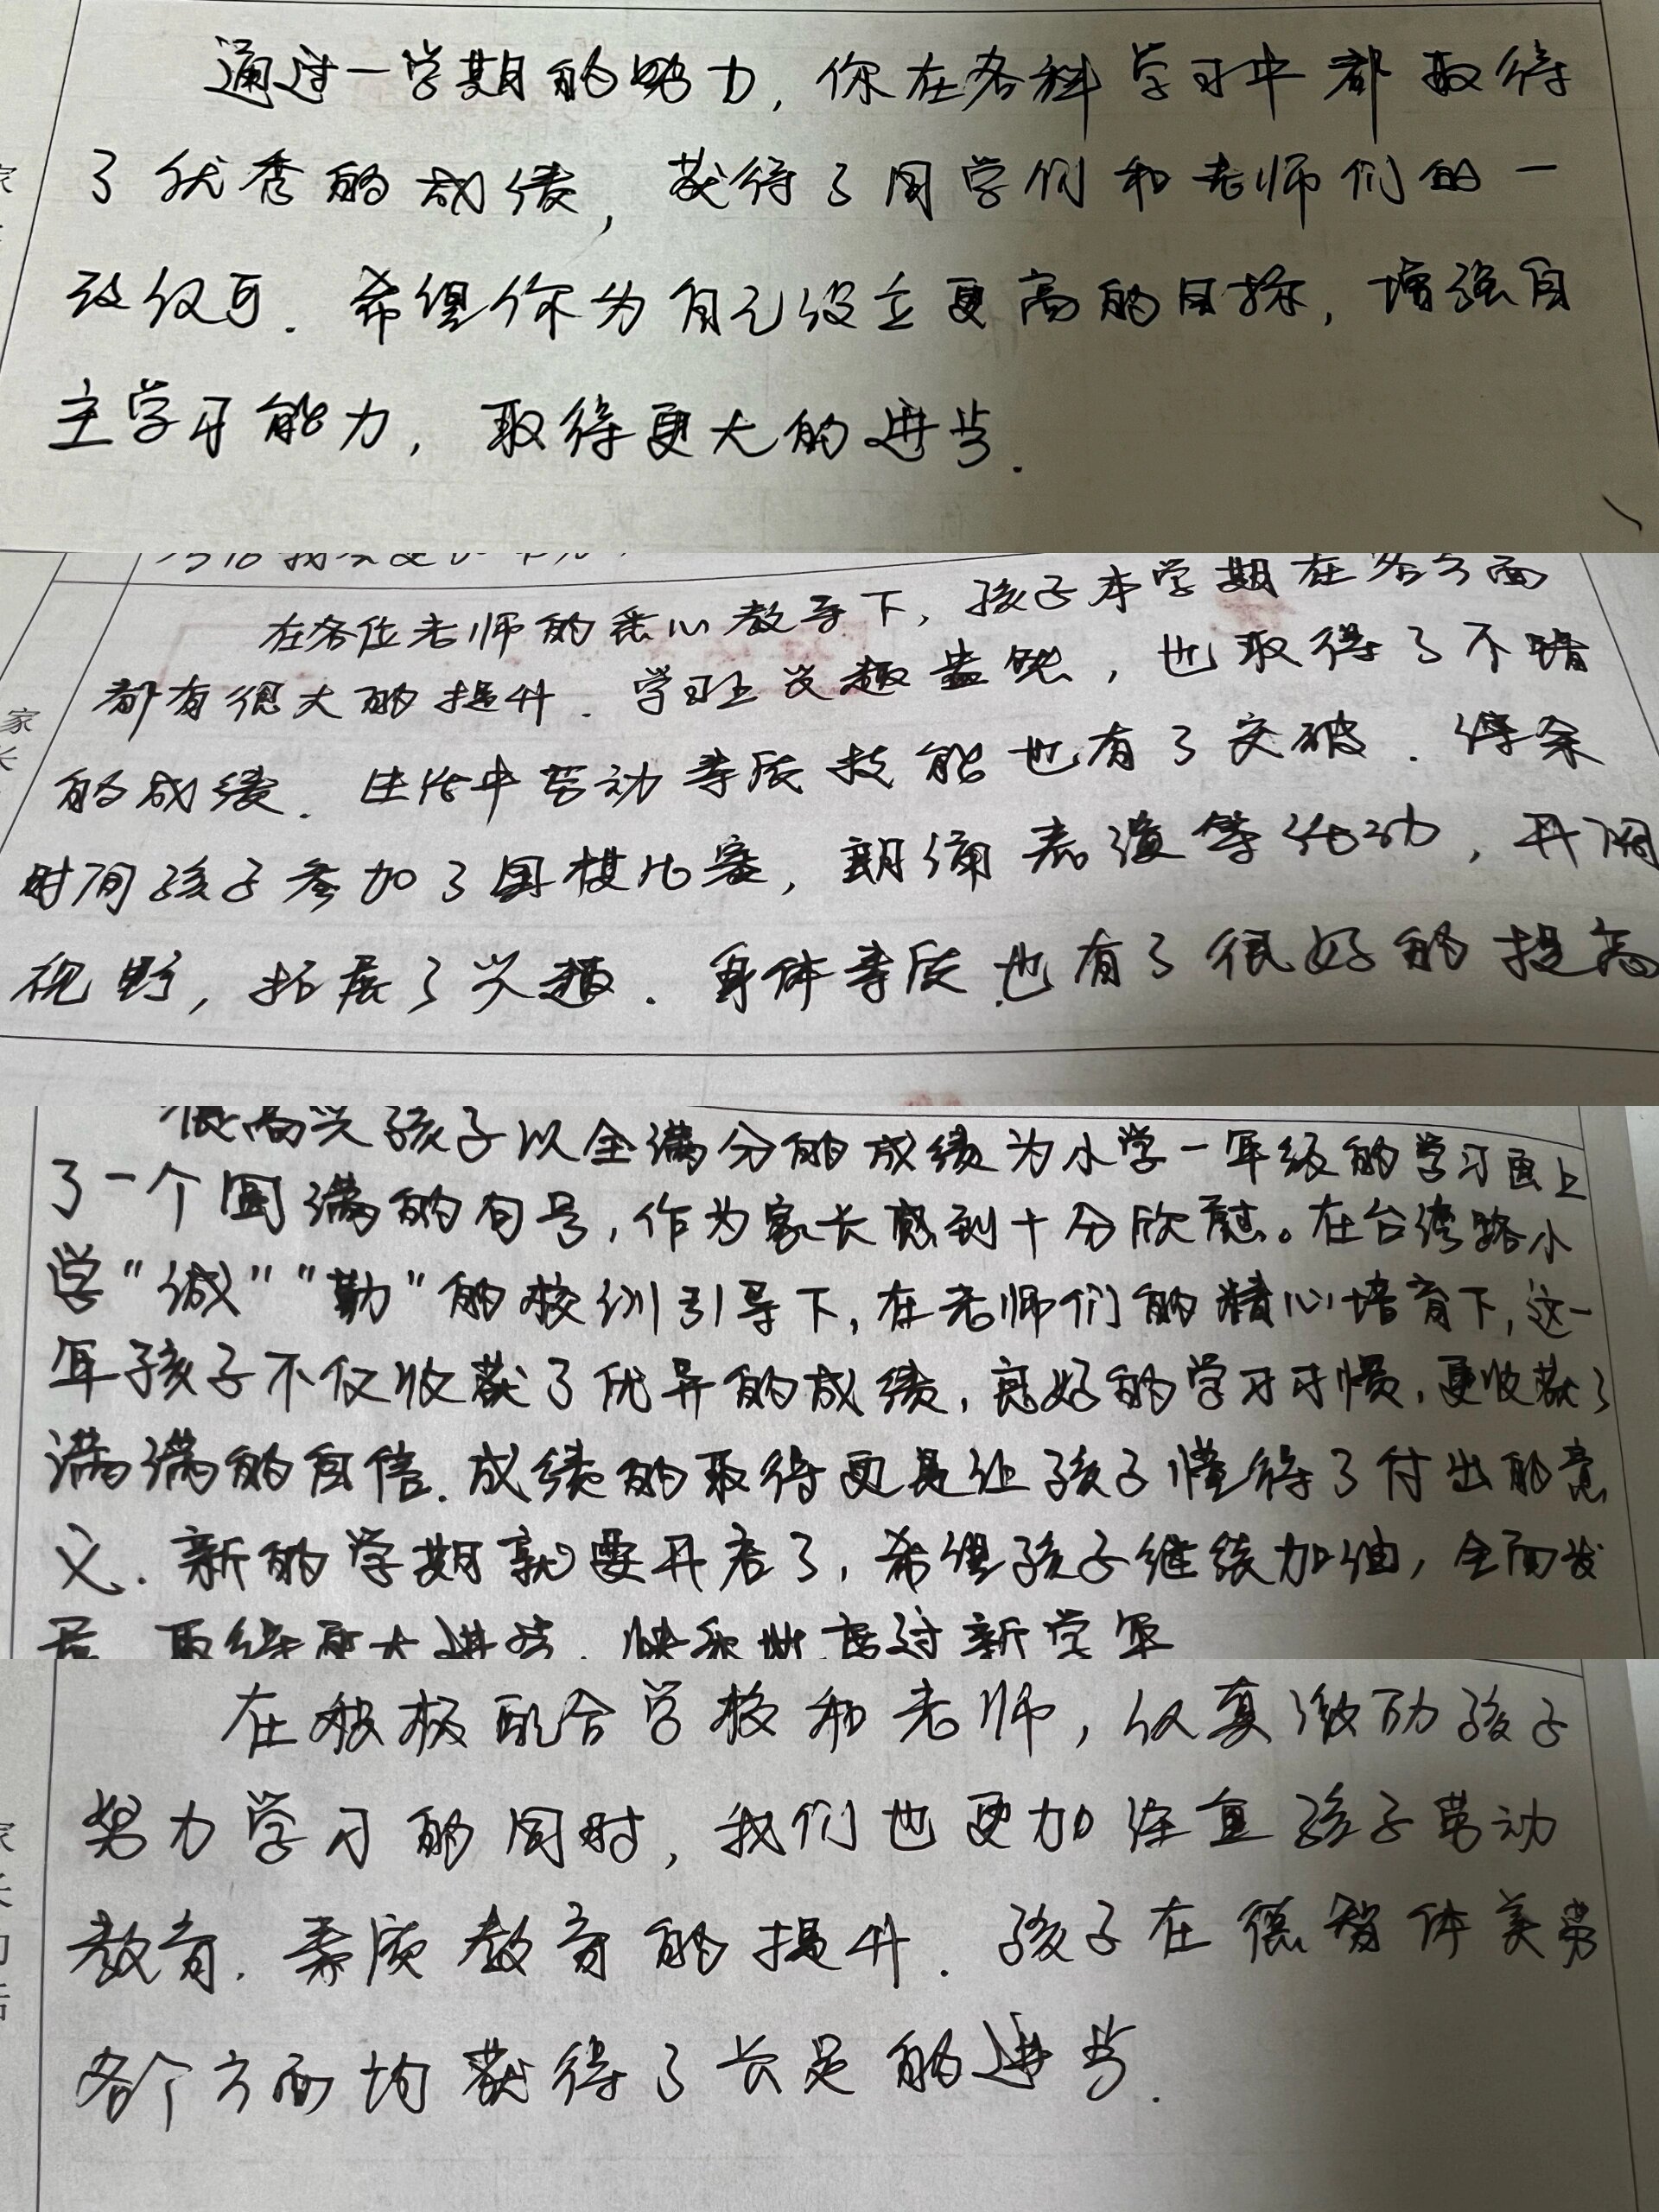 通过一学期的努力，你在各科学习中都取得
了优秀的成绩，获得了同学们和老师们的一
致认可．希望你为自己设立更高的目标，增强自
主学习能力，取得更大的进步．
在各位老师的悉心教导下，孩子本学期在各方面
家
都有很大的提升．学习上兴趣盎然，也取得了不错
长
的成绩．生活中劳动素质技能也有了突破．课余
时间孩子参加了围棋比赛，朗诵表演等活动，开阔
视野，拓展了兴趣．身体素质也有了很好的提高
很高兴孩子以全满分的成绩为小学一年级的学习画上
了一个圆满的句号，作为家长感到十分欣慰。在台湾路小
学"诚""勤"的校训引导下，在老师们的精心培育下，这一
年孩子不仅收获了优异的成绩，良好的学习习惯，更收获了
满满的自信．成绩的取得更是让孩子懂得了付出的意
义．新的学期就要开启了，希望孩子继续加油，全面发
展　取得更大进步．快乐地度过新学年
在积极配合学校和老师，认真激励孩子
努力学习的同时，我们也更加注重孩子劳动
教育．素质教育的提升．孩子在德智体美劳
各个方面均获得了长足的进步．